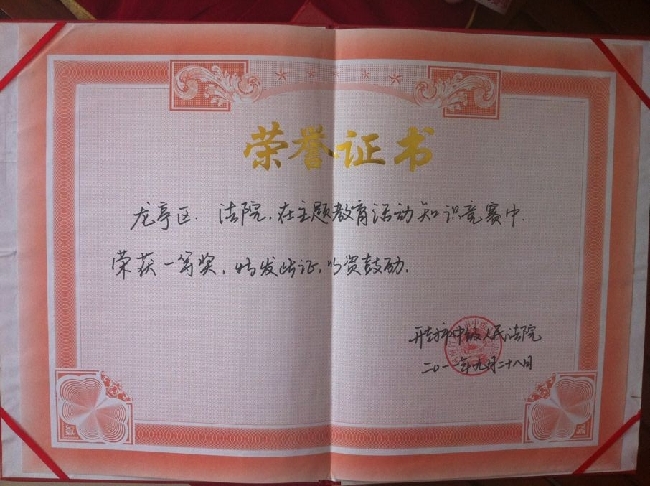 荣誉证书
龙亭区 法院，在主题教育活动知识竞赛中
荣获一等奖，特发此证，以资鼓励。
开封市中级人民法院
二〇一一年九月二十八日